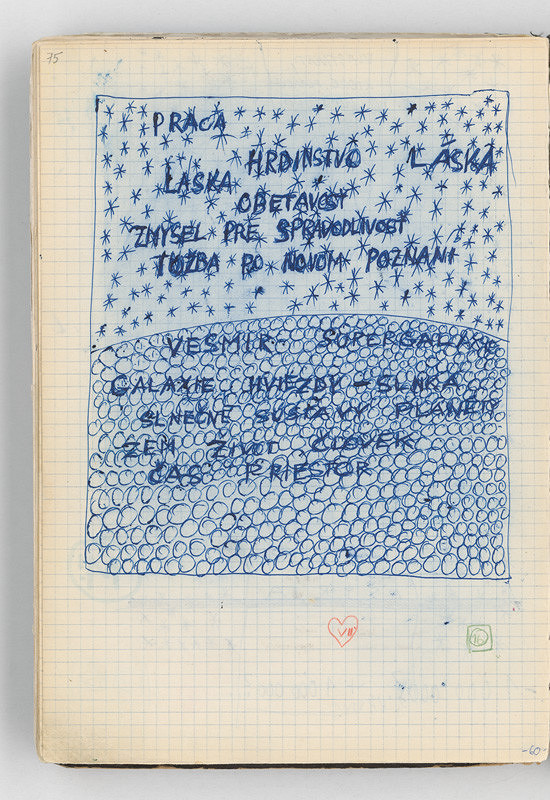 75
PRÁCA
HRDINSTVO LÁSKA
LÁSKA
OBETAVOSŤ
ZMYSEL PRE SPRAVODLIVOSŤ
TÚŽBA PO NOVOM POZNANÍ
VESMÍR - SUPERGALAXIE
GALAXIE HVIEZDY - SLNKÁ
SLNEČNÉ SÚSTAVY PLANÉTY
ZEM ŽIVOT ČLOVEK
ČAS PRIESTOR
VII
16
-60-